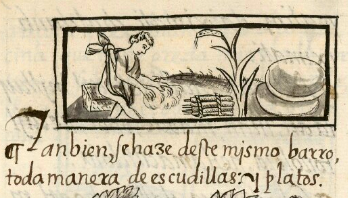 ¶ Tanbien, se haze deste mismo barro,
toda manera de escudillas: y platos.